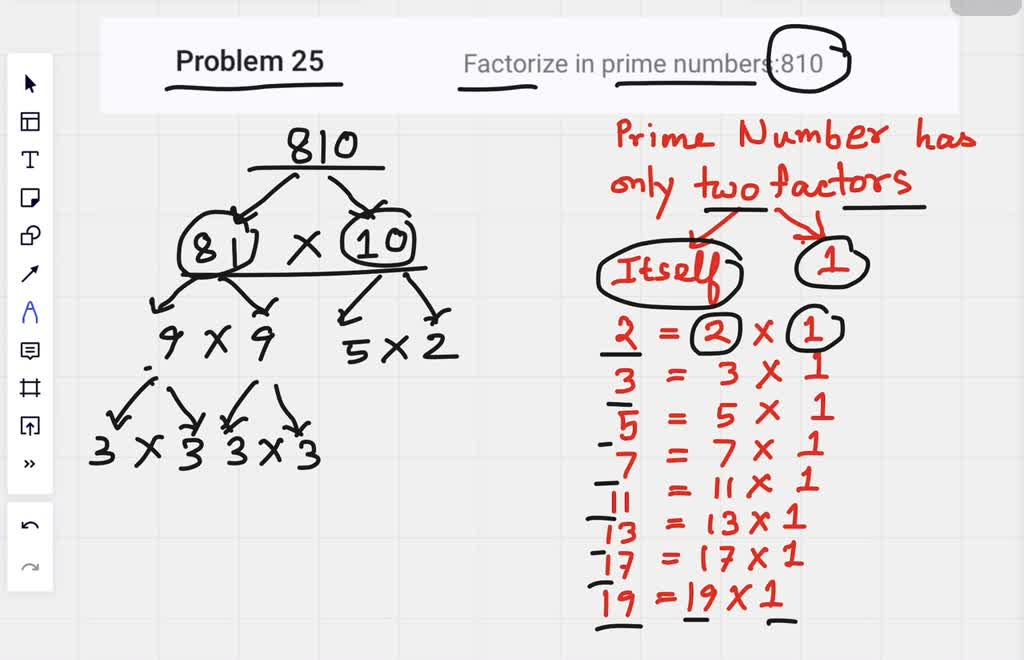 Problem 25
Factorize in prime numbers:810
810
81 × 10
9 × 9 5 × 2
3 × 3 3 × 3
Prime Number has
only two factors
Itself 1
2 = 2 × 1
3 = 3 × 1
5 = 5 × 1
7 = 7 × 1
11 = 11 × 1
13 = 13 × 1
17 = 17 × 1
19 = 19 × 1
T
»